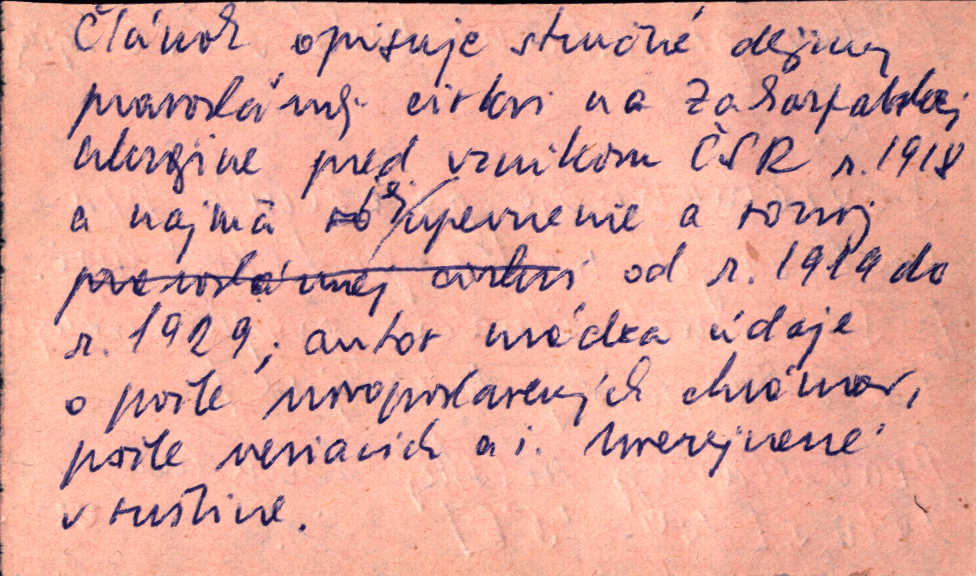 Článok opisuje stručné dejiny
pravoslávnej cirkvi na Zakarpatskej
Ukrajine pred vznikom ČSR r. 1918
a najmä jej upevnenie a rozvoj
pravoslávnej cirkvi od r. 1919 do
r. 1929; autor uvádza údaje
o počte novopostavených chrámov,
počte veriacich a i. Uverejnené
v ruštine.